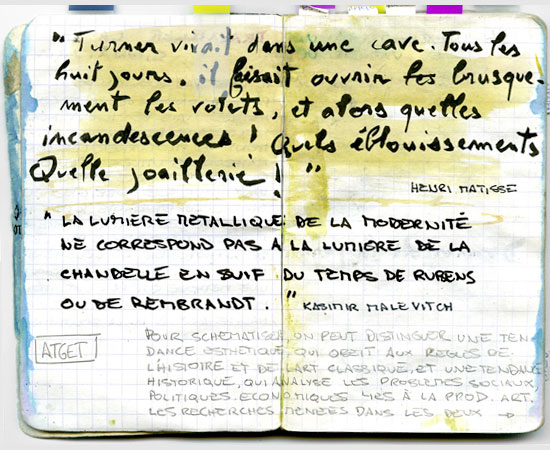 " Turner vivait dans une cave. Tous les
huit jours, il faisait ouvrir les brusque-
ment les volets, et alors quelles
incandescences ! Quels éblouissements
Quelle joaillerie ! "
HENRI MATISSE
" LA LUMIÈRE METALLIQUE DE LA MODERNITÉ
NE CORRESPOND PAS À LA LUMIERE DE LA
CHANDELLE EN SUIF DU TEMPS DE RUBENS
OU DE REMBRANDT. " KASIMIR MALEVITCH
ATGET
POUR SCHEMATISER, ON PEUT DISTINGUER UNE TEN
DANCE ESTHÉTIQUE, QUI OBEIT AUX REGLES DE
L'HISTOIRE ET DE L'ART CLASSIQUE, ET UNE TENDANCE
HISTORIQUE, QUI ANALYSE LES PROBLEMES SOCIAUX,
POLITIQUES. ECONOMIQUES LIÉS À LA PROD. ART.
LES RECHERCHES MENÉES DANS LES DEUX →